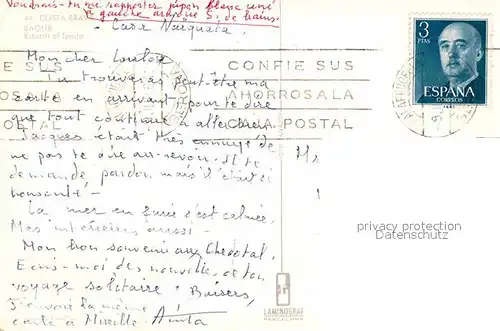 Voudrais-tu me rapporter jupon blanc uni
gauche armoire S. de bains.
COSTA BRA
BAGUR
Casa Narquara
Mon cher Loulou
Tu trouveras peut-être ma
carte en arrivant, pour te dire
que tout continue à aller bien.
Jacques était très ennuyé de
ne pas te dire au-revoir. Il te
demande pardon mais il était si
-
La mer en furie s'est calmée.
Mes intérieurs aussi -
Mon bon souvenir aux Chevotal.
Ecris-moi des nouvelles et ton
voyage solitaire. Baisers,
J'envoie la même
carte à Mireille. Anita
E SUS
CONFIE SUS
OSALA
AHORROS A LA
OSTAL
CAJA POSTAL
3
PTAS
ESPAÑA
CORREOS
Mr
privacy protection
Datenschutz
LAMINOGRAF
BARCELONA